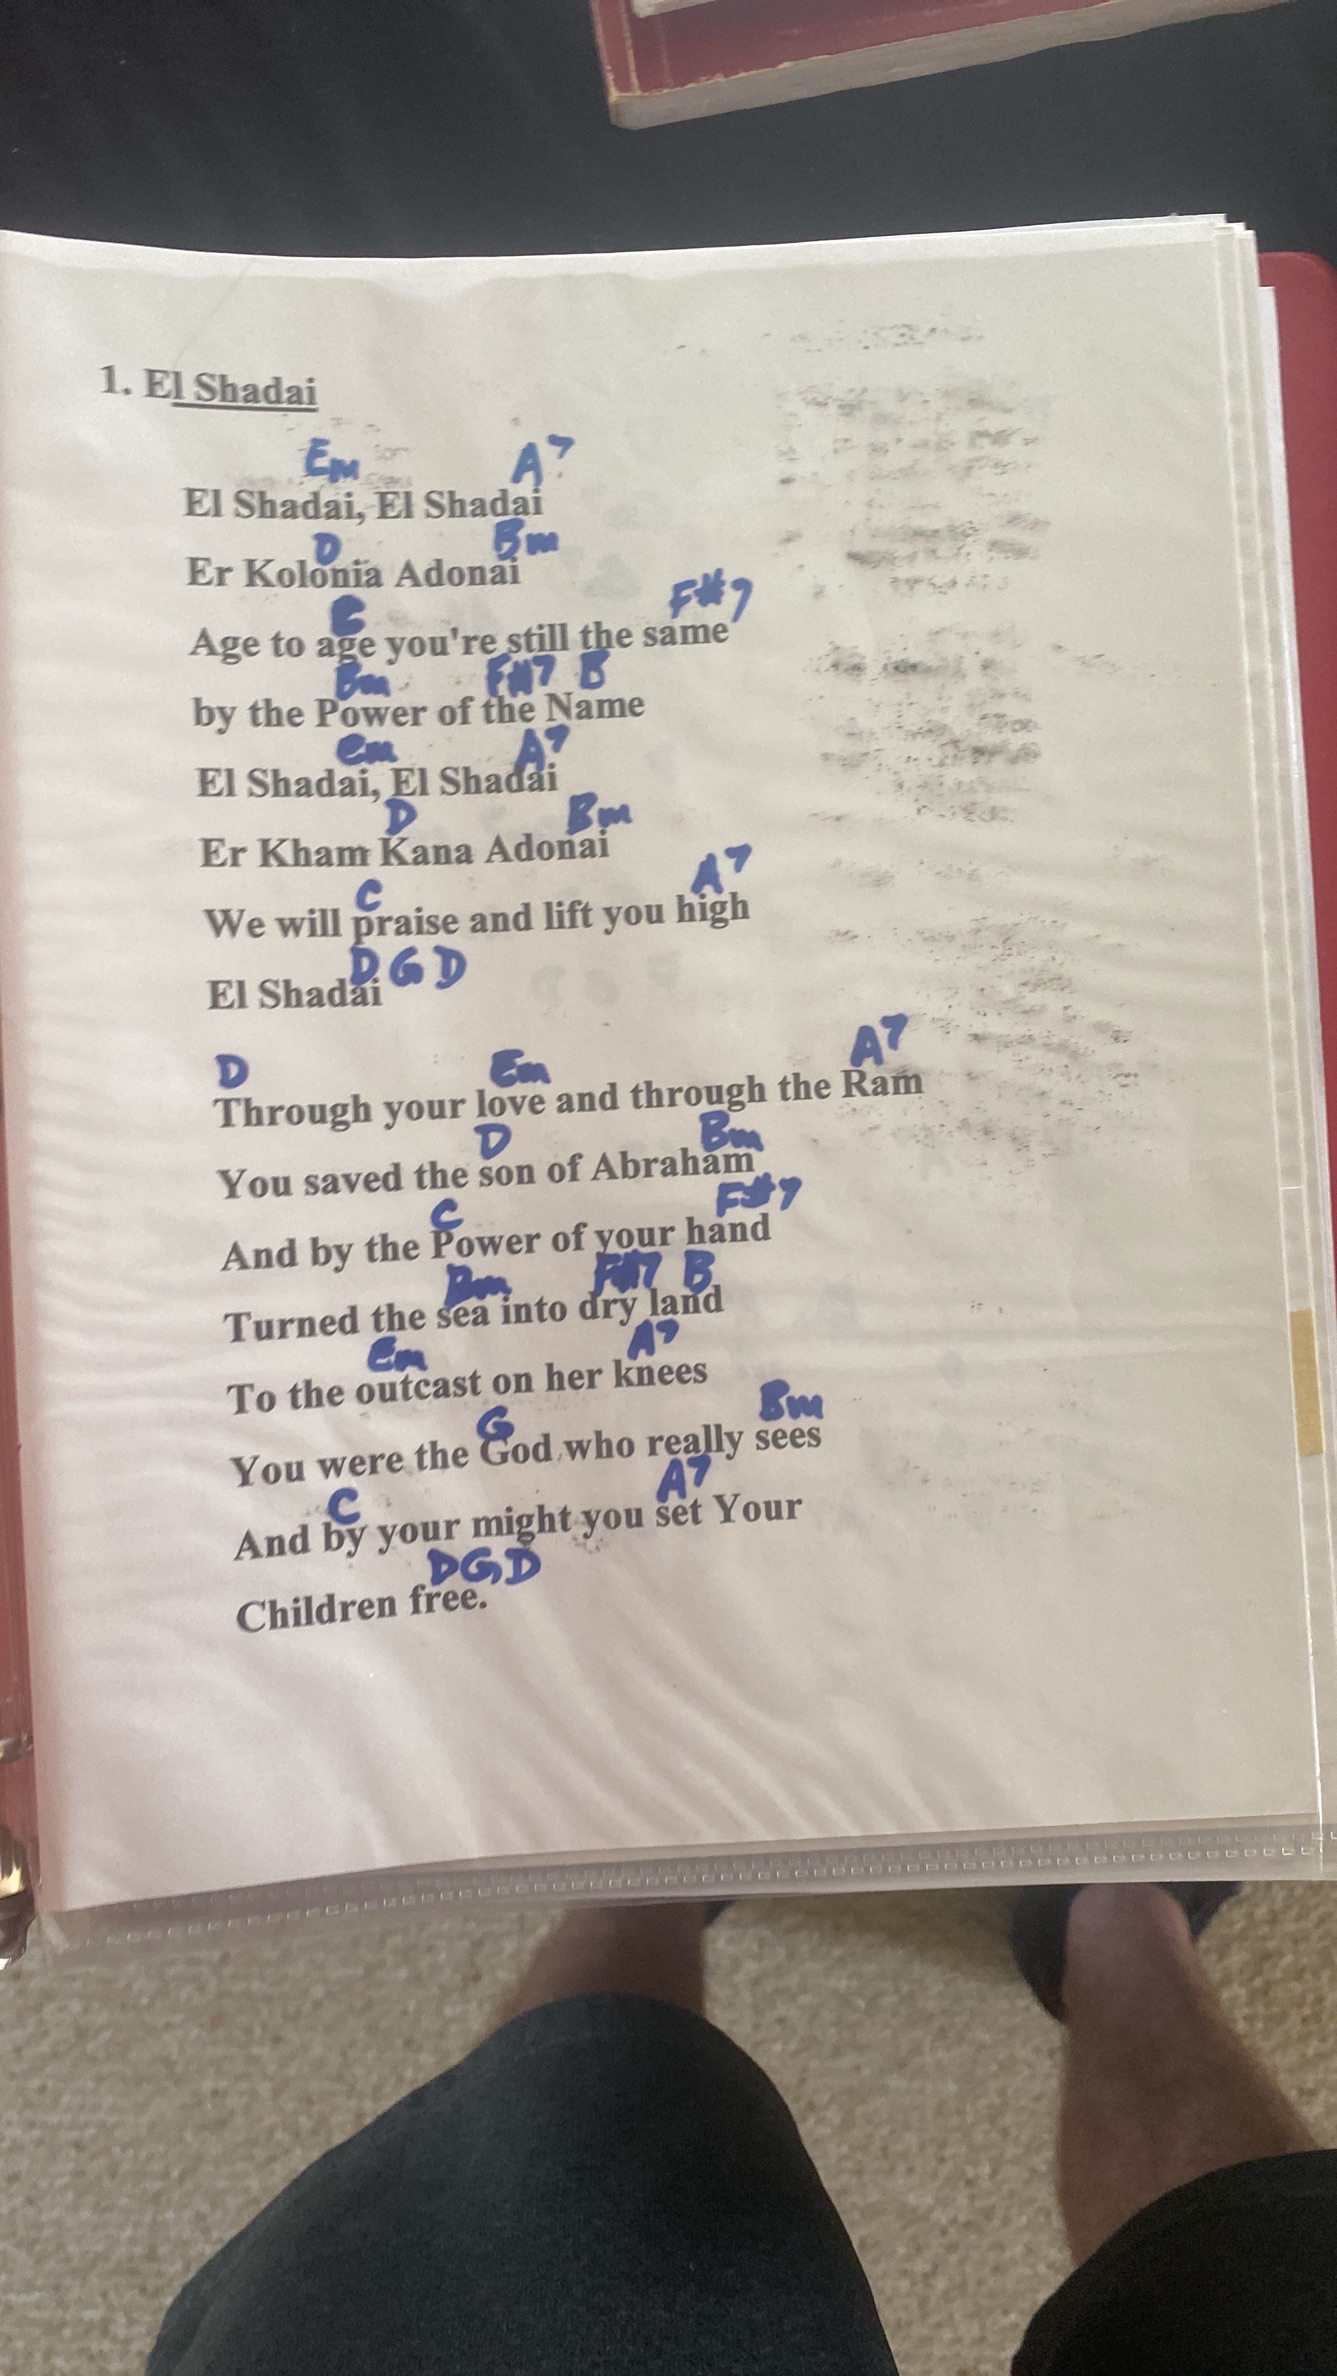 1. El Shadai
Em A7
El Shadai, El Shadai
D Bm
Er Kolonia Adonai
C F#7
Age to age you're still the same
Bm F#7 B
by the Power of the Name
em A7
El Shadai, El Shadai
D Bm
Er Kham Kana Adonai
C A7
We will praise and lift you high
D G D
El Shadai
D Em A7
Through your love and through the Ram
D Bm
You saved the son of Abraham
C F#7
And by the Power of your hand
Bm F#7 B
Turned the sea into dry land
em A7
To the outcast on her knees
G Bm
You were the God who really sees
C A7
And by your might you set Your
D G D
Children free.